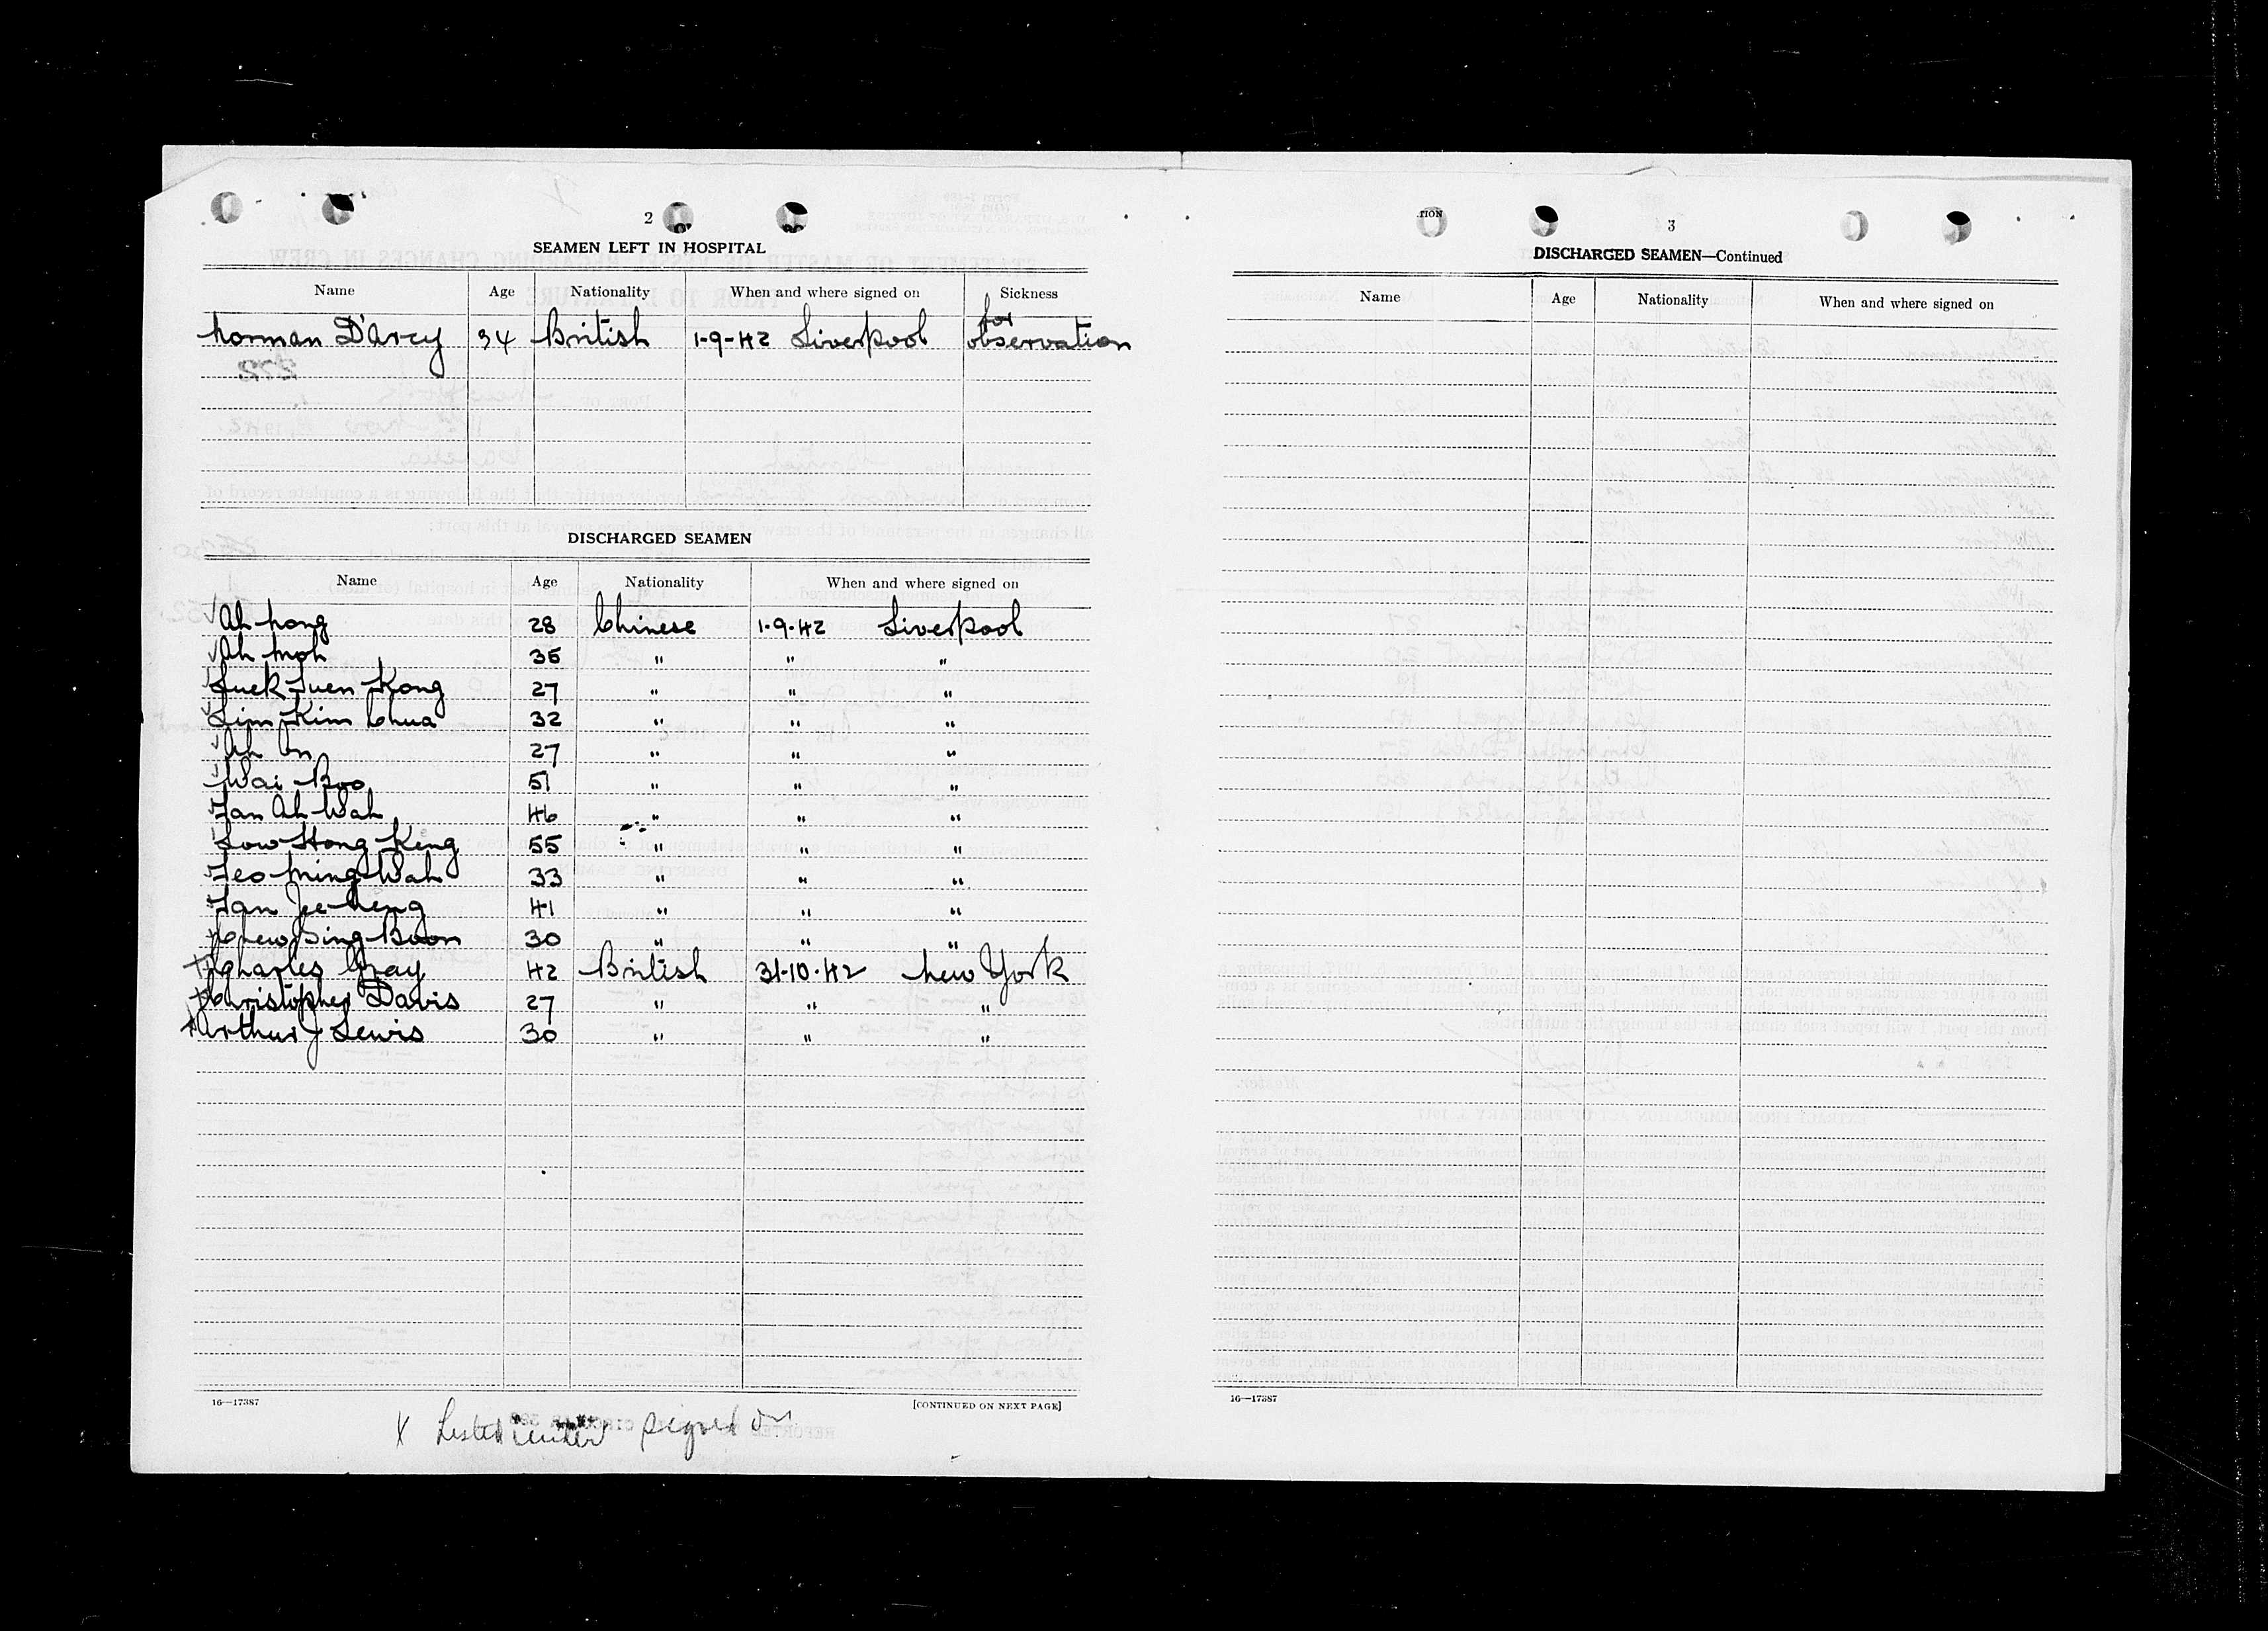 2
SEAMEN LEFT IN HOSPITAL
Name Age Nationality When and where signed on Sickness
Norman D'Arcy 34 British 1-9-42 Liverpool for observation
DISCHARGED SEAMEN
Name Age Nationality When and where signed on
Ah Hong 28 Chinese 1-9-42 Liverpool
Ah Moh 35 " " "
Suek Suen Kong 27 " " "
Lim Kim Chua 32 " " "
Ah On 27 " " "
Wai Boo 51 " " "
Tan Ah Wah 46 " " "
Low Hong Keng 55 " " "
Teo Ming Wah 33 " " "
Tan Jee Heng 41 " " "
Chew Sing Boon 30 " " "
Charles Gray 42 British 31-10-42 New York
Christopher Davis 27 " " "
Arthur J Lewis 30 " " "
16—17387 [CONTINUED ON NEXT PAGE]
X Listed under signed on
TION
3
DISCHARGED SEAMEN—Continued
Name Age Nationality When and where signed on
16—17387